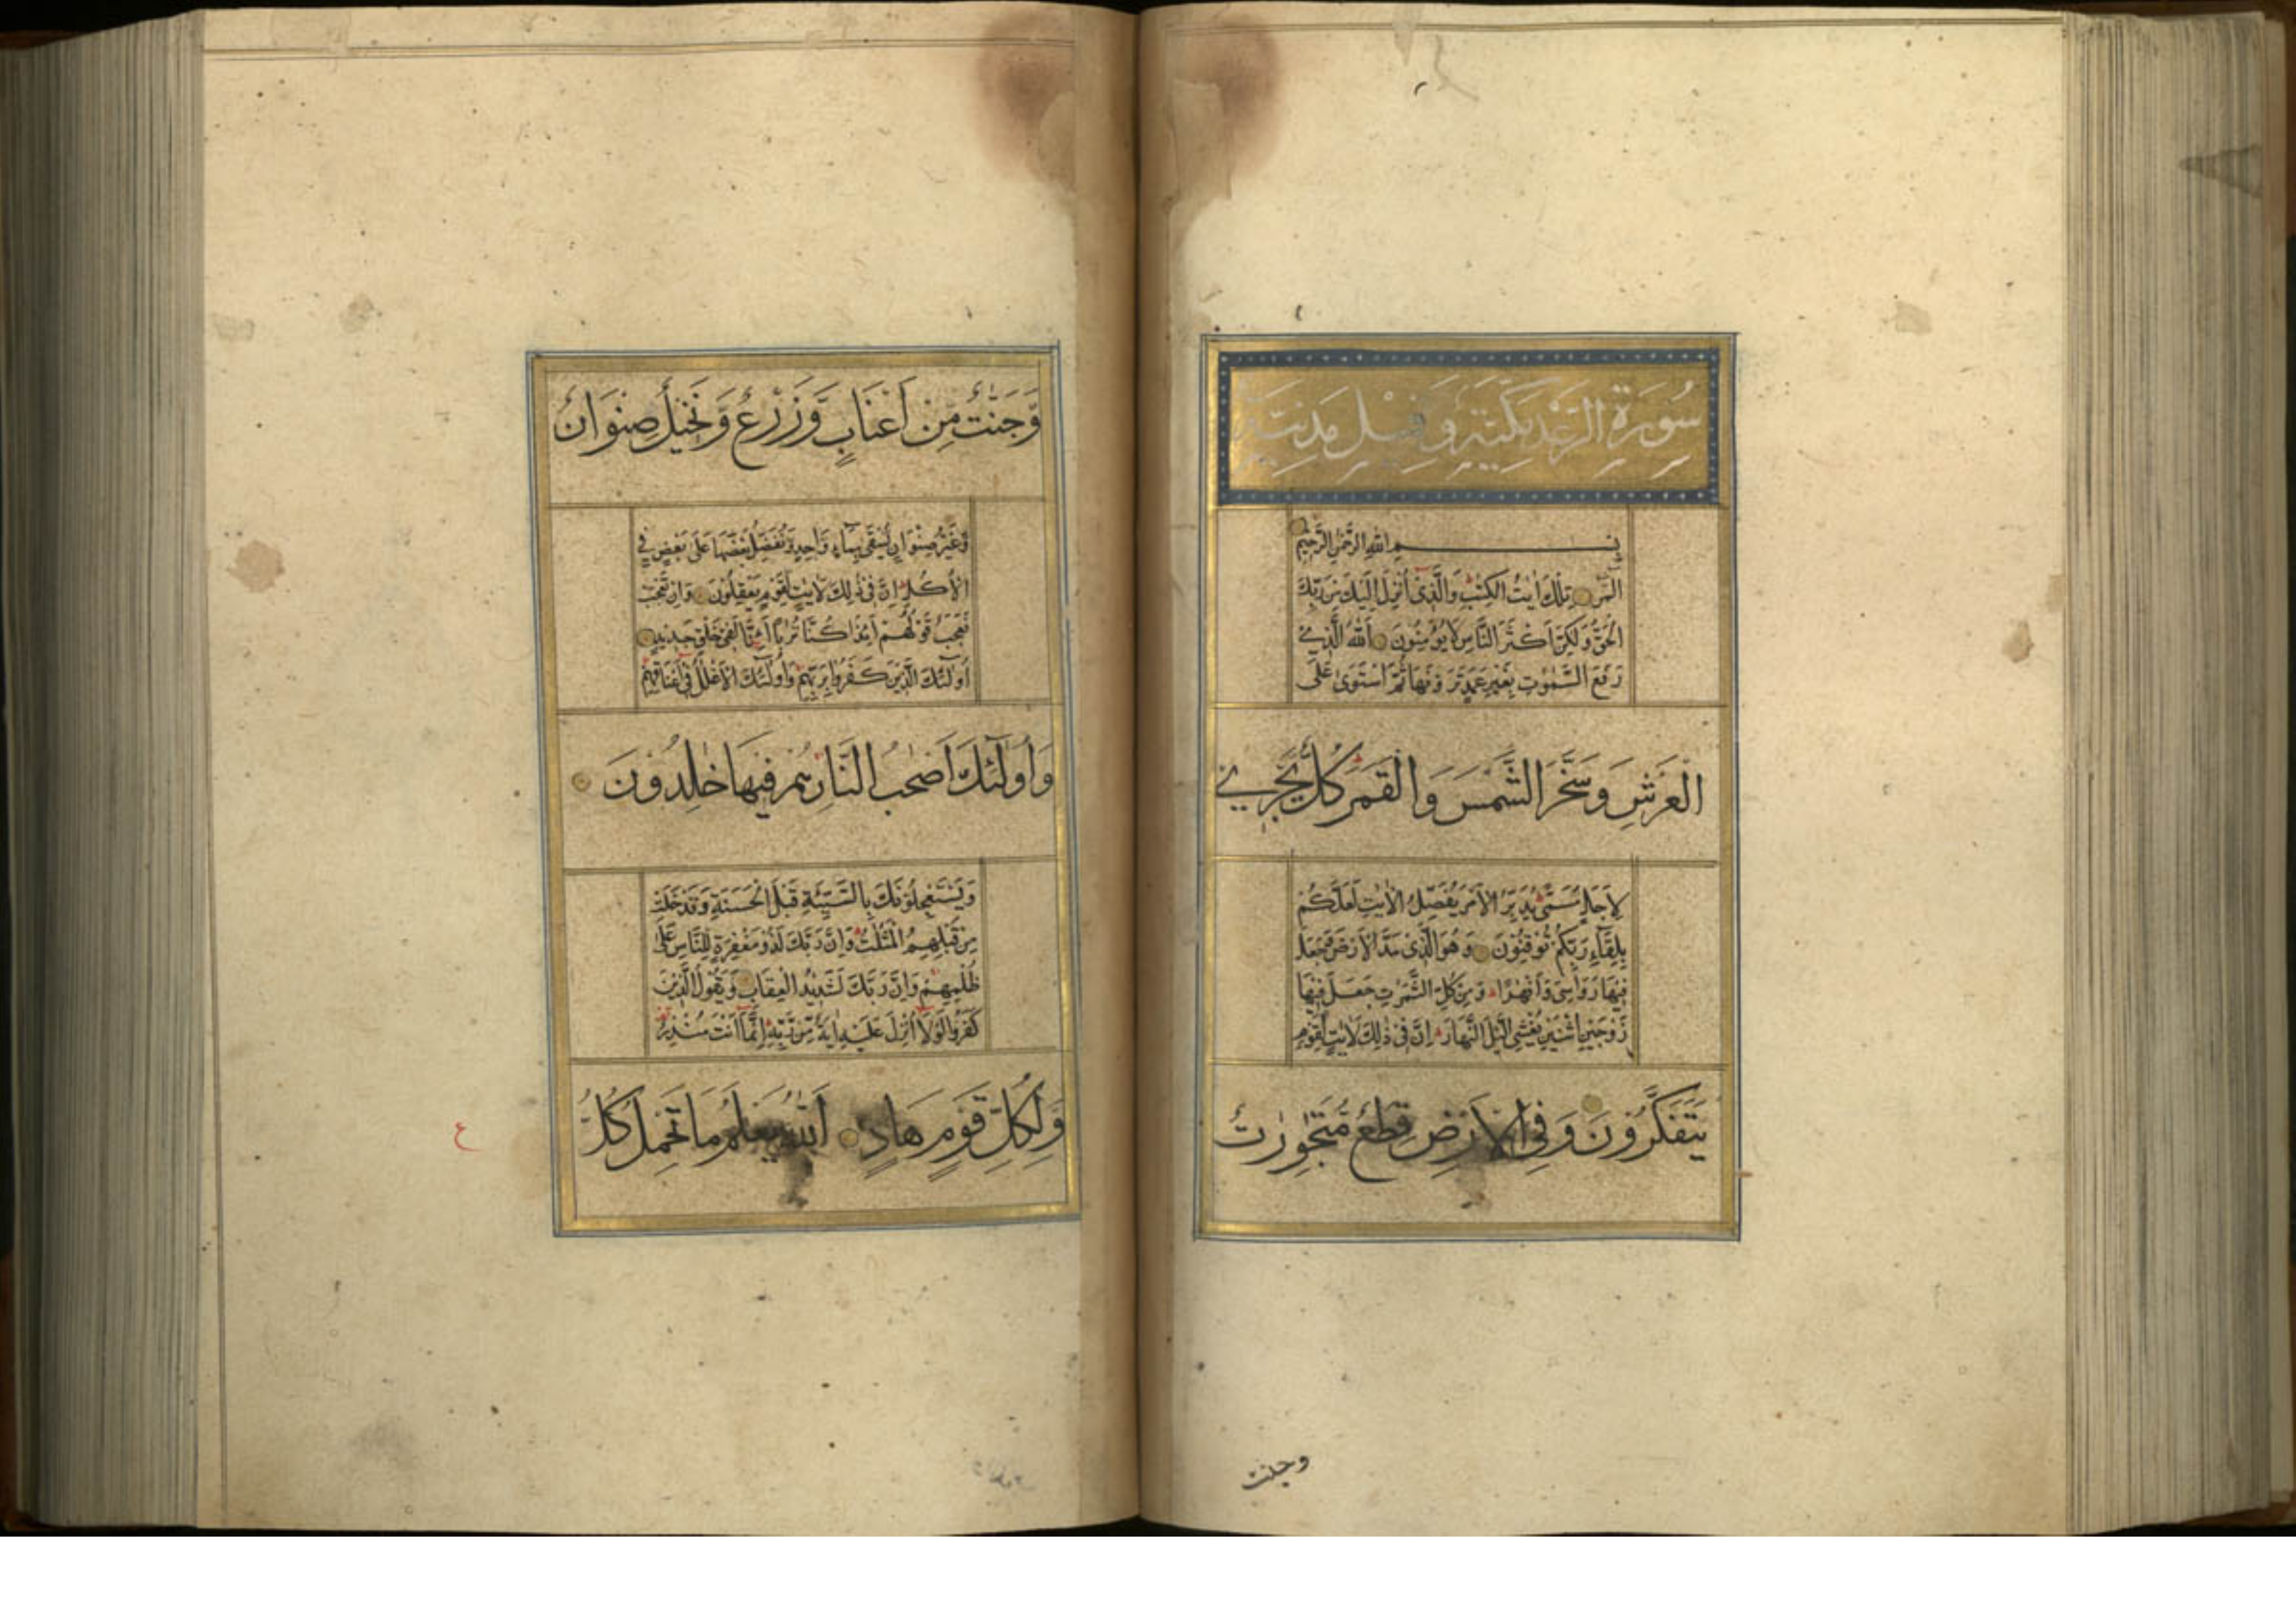 سُورَةُ الرَّعْدِ مَكِّيَّة وَقِيلَ مَدَنِيَّة
بِسْمِ اللهِ الرَّحْمٰنِ الرَّحِيْمِ
الٓمّرٰ تِلْكَ اٰيٰتُ الْكِتٰبِ وَالَّذِيْٓ اُنْزِلَ اِلَيْكَ مِنْ رَبِّكَ
الْحَقُّ وَلٰكِنَّ اَكْثَرَ النَّاسِ لَا يُؤْمِنُوْنَ اَللهُ الَّذِيْ
رَفَعَ السَّمٰوٰتِ بِغَيْرِ عَمَدٍ تَرَوْنَهَا ثُمَّ اسْتَوٰى عَلَى
الْعَرْشِ وَسَخَّرَ الشَّمْسَ وَالْقَمَرَ كُلٌّ يَجْرِيْ
لِاَجَلٍ مُّسَمًّى يُدَبِّرُ الْاَمْرَ يُفَصِّلُ الْاٰيٰتِ لَعَلَّكُمْ
بِلِقَآءِ رَبِّكُمْ تُوْقِنُوْنَ وَهُوَ الَّذِيْ مَدَّ الْاَرْضَ وَجَعَلَ
فِيْهَا رَوَاسِيَ وَاَنْهٰرًا وَمِنْ كُلِّ الثَّمَرٰتِ جَعَلَ فِيْهَا
زَوْجَيْنِ اثْنَيْنِ يُغْشِي الَّيْلَ النَّهَارَ اِنَّ فِيْ ذٰلِكَ لَاٰيٰتٍ لِّقَوْمٍ
يَّتَفَكَّرُوْنَ وَفِي الْاَرْضِ قِطَعٌ مُّتَجٰوِرٰتٌ
وجنت
وَّجَنّٰتٌ مِّنْ اَعْنَابٍ وَّزَرْعٌ وَّنَخِيْلٌ صِنْوَانٌ
وَّغَيْرُ صِنْوَانٍ يُّسْقٰى بِمَآءٍ وَّاحِدٍ وَّنُفَضِّلُ بَعْضَهَا عَلٰى بَعْضٍ فِي
الْاُكُلِ اِنَّ فِيْ ذٰلِكَ لَاٰيٰتٍ لِّقَوْمٍ يَّعْقِلُوْنَ وَاِنْ تَعْجَبْ
فَعَجَبٌ قَوْلُهُمْ ءَاِذَا كُنَّا تُرٰبًا ءَاِنَّا لَفِيْ خَلْقٍ جَدِيْدٍ
اُولٰٓئِكَ الَّذِيْنَ كَفَرُوْا بِرَبِّهِمْ وَاُولٰٓئِكَ الْاَغْلٰلُ فِيْٓ اَعْنَاقِهِمْ
وَاُولٰٓئِكَ اَصْحٰبُ النَّارِ هُمْ فِيْهَا خٰلِدُوْنَ
وَيَسْتَعْجِلُوْنَكَ بِالسَّيِّئَةِ قَبْلَ الْحَسَنَةِ وَقَدْ خَلَتْ
مِنْ قَبْلِهِمُ الْمَثُلٰتُ وَاِنَّ رَبَّكَ لَذُوْ مَغْفِرَةٍ لِّلنَّاسِ عَلٰى
ظُلْمِهِمْ وَاِنَّ رَبَّكَ لَشَدِيْدُ الْعِقَابِ وَيَقُوْلُ الَّذِيْنَ
كَفَرُوْا لَوْلَآ اُنْزِلَ عَلَيْهِ اٰيَةٌ مِّنْ رَّبِّهٖ اِنَّمَآ اَنْتَ مُنْذِرٌ
وَّلِكُلِّ قَوْمٍ هَادٍ اَللهُ يَعْلَمُ مَا تَحْمِلُ كُلُّ
ع